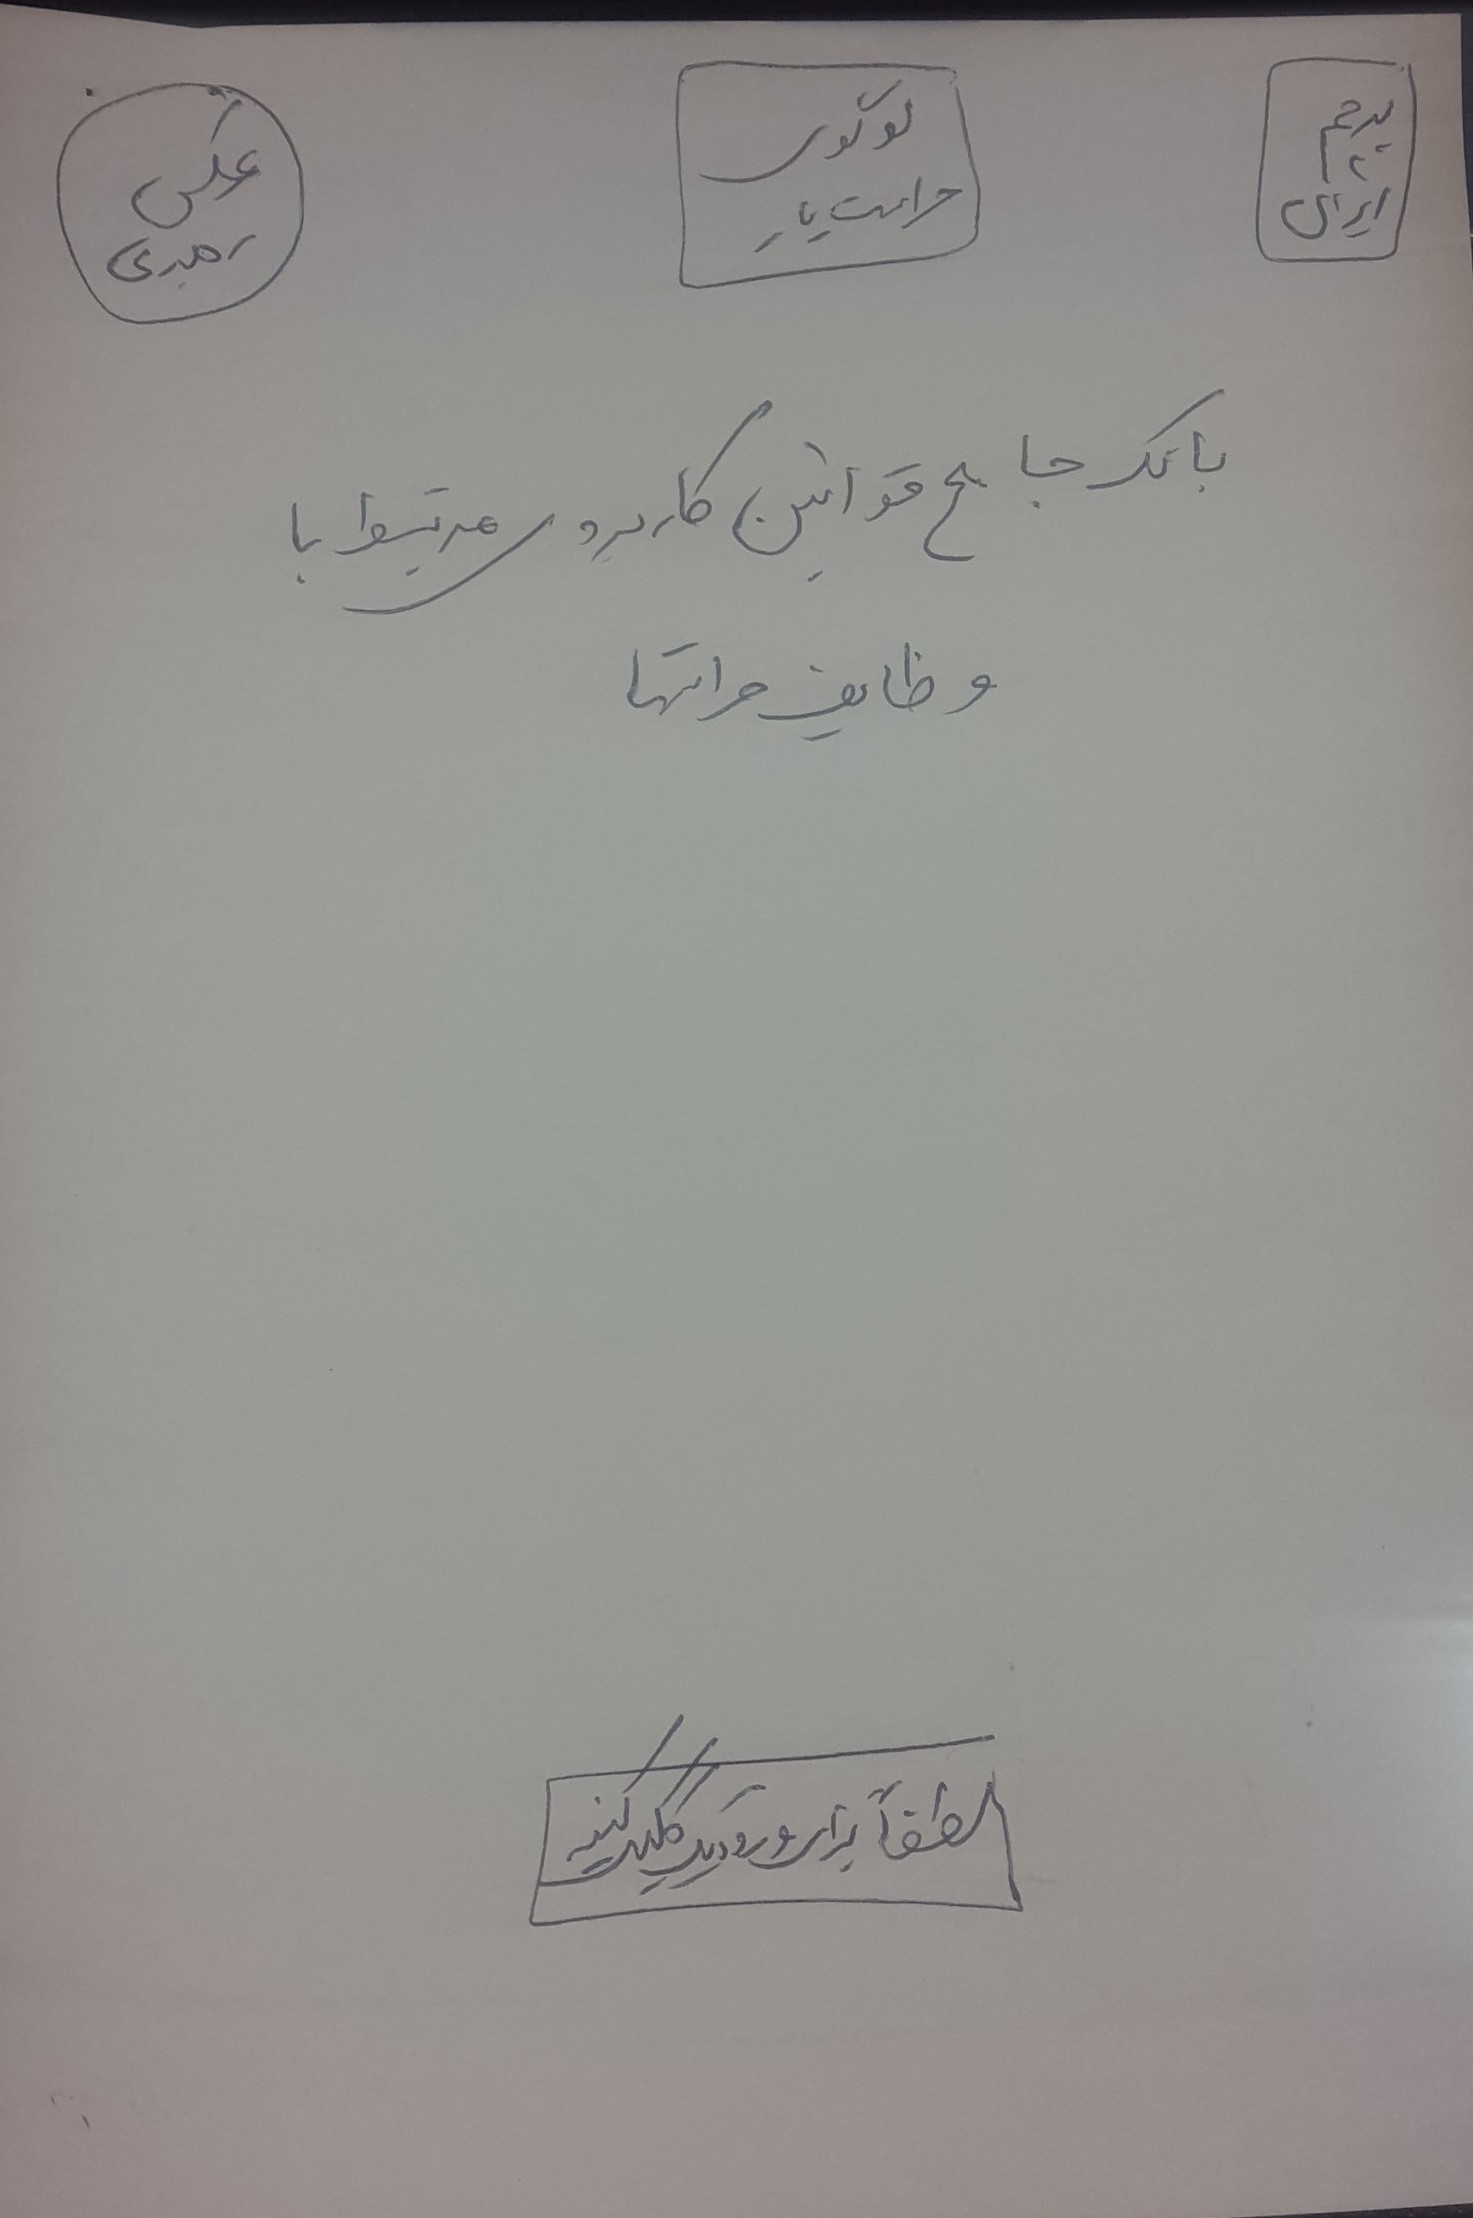 پرچم
ایران
لوگوی
حراست یار
عکس
رهبری
بانک جامع قوانین کاربردی مرتبط با
وظایف حراستها
لطفاً برای ورود کلیک کنید